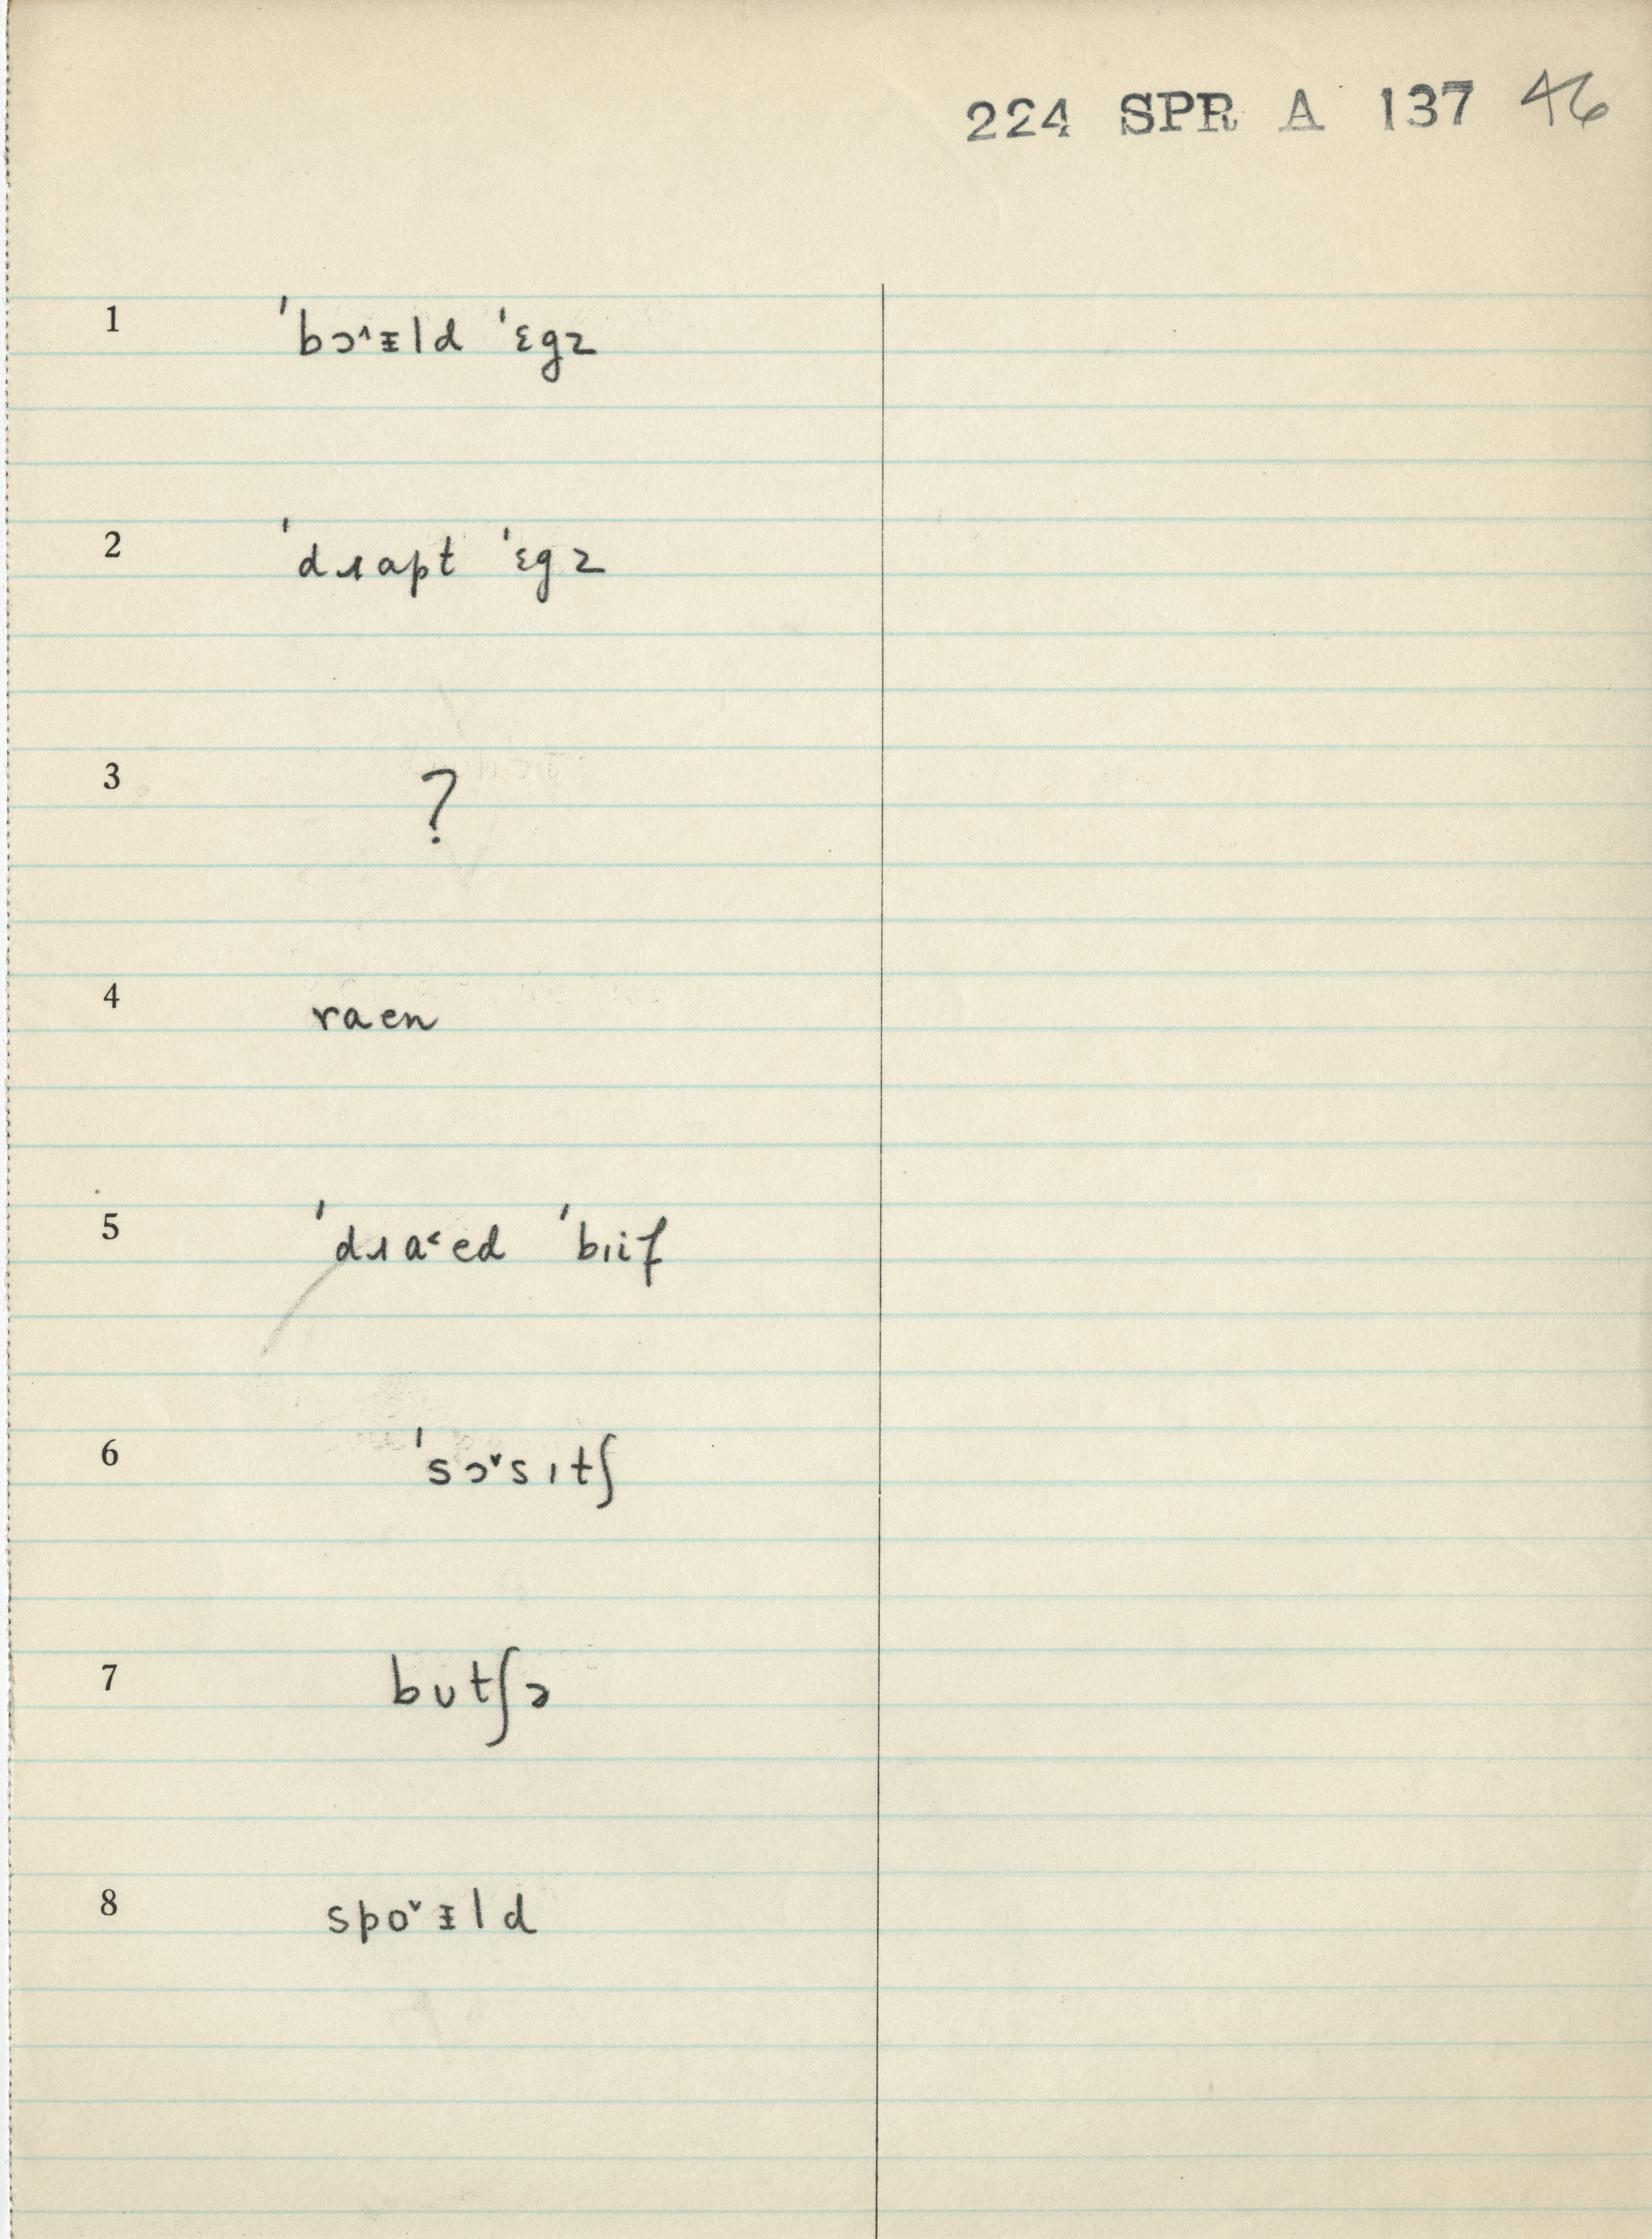 224 SPR A 137 46
1 ˈbɔ˄ᵻld ˈɛgz
2 ˈdɹapt ˈɛgz
3 ?
4 raen
5 ˈdɹa˂ed ˈbɪif
6 ˈsɔ˅sɪtʃ
7 bʊtʃɔ
8 spo˅ᵻld